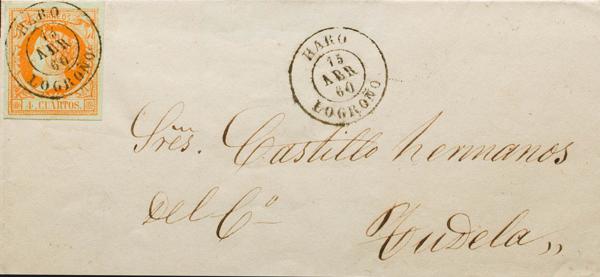 HARO
15
ABR
60
LOGROÑO
4 CUARTOS.
HARO
15
ABR
60
LOGROÑO
Sres. Castillo hermanos
del Cº
Tudela